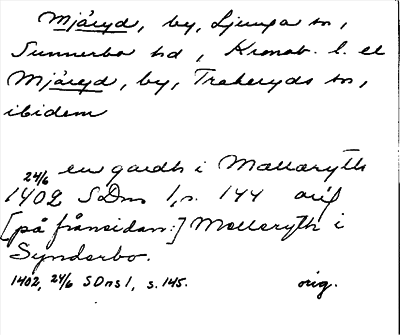 Mjäryd, by, Ljunga sn,
Sunnerbo hd, Kronob. l. el
Mjäryd, by, Traheryds sn,
ibidem
en gardh i Mællaryth
24/6 1402 SDns 1, s. 144 orig
[på frånsidan:] Mælleryth i
Synderbo.
1402, 24/6 SDns 1, s. 145. orig.